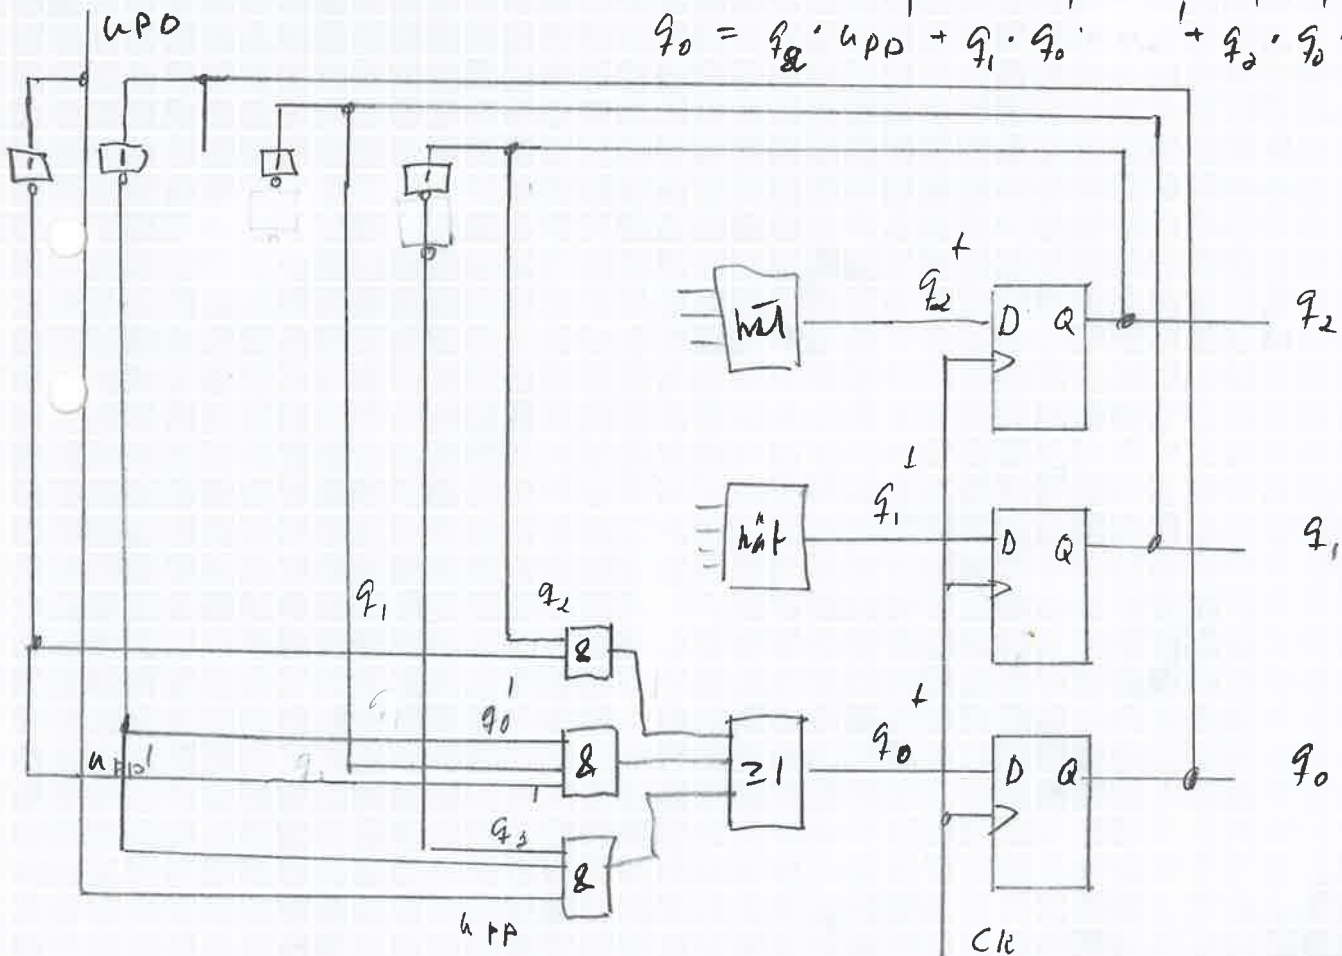 upp
q0 = q2 · upp' + q1 · q0' · + q2 · q0
1 1 1 1
nät q2+ D Q q2
nät q1+ D Q q1
q1 q2
&
q0'
upp' & ≥1 q0+ D Q q0
q2
&
upp
Ck